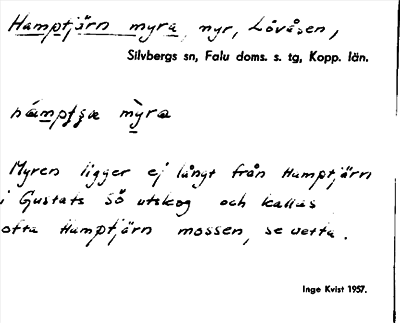 Hamptjärn myra, myr, Lövåsen,
Silvbergs sn, Falu doms. s. tg, Kopp. län.
myra
Myren ligger ej långt från Hamptjärn
i Gustafs Sö utskog och kallas
ofta Hamptjärn mossen, se detta.
Inge Kvist 1957.